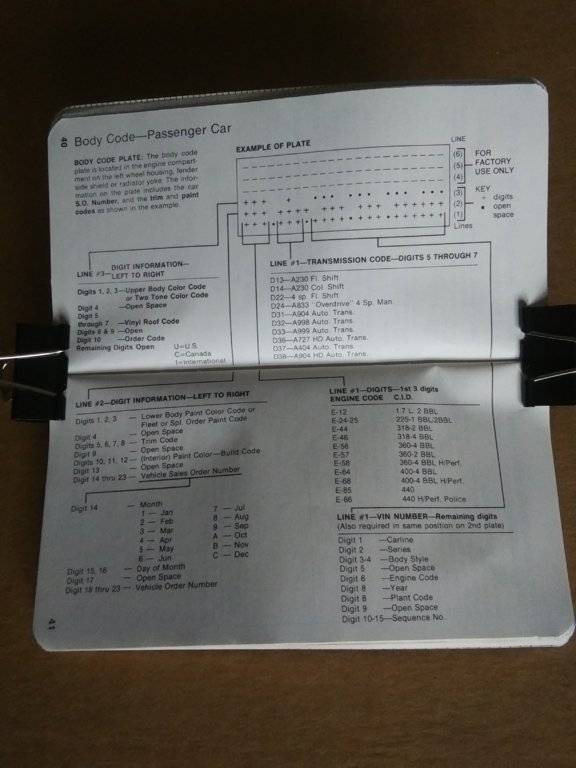 40
Body Code—Passenger Car
BODY CODE PLATE: The body code
plate is located in the engine compart-
ment on the left wheel housing, fender
side shield or radiator yoke. The infor-
mation on the plate includes the car
S.O. Number, and the trim and paint
codes as shown in the example.
EXAMPLE OF PLATE
LINE
(6)
(5)
(4)
FOR
FACTORY
USE ONLY
(3)
(2)
(1)
Lines
KEY
+ digits
• open
space
LINE #3— DIGIT INFORMATION—
LEFT TO RIGHT
Digits 1, 2, 3—Upper Body Color Code
or Two Tone Color Code
Digit 4 —Open Space
Digit 5
through 7 —Vinyl Roof Code
Digits 8 & 9 —Open
Digit 10 —Order Code
Remaining Digits Open U=U.S.
C=Canada
I=International
LINE #1—TRANSMISSION CODE—DIGITS 5 THROUGH 7
D13—A230 Fl. Shift
D14—A230 Col. Shift
D22—4 sp. Fl. Shift
D24—A833 "Overdrive" 4 Sp. Man.
D31—A904 Auto. Trans.
D32—A998 Auto. Trans.
D33—A999 Auto. Trans.
D36—A727 HD Auto. Trans.
D37—A404 Auto. Trans.
D38—A904 HD Auto. Trans.
LINE #2—DIGIT INFORMATION—LEFT TO RIGHT
Digits 1, 2, 3 — Lower Body Paint Color Code or
Fleet or Spl. Order Paint Code
Digit 4 — Open Space
Digits 5, 6, 7, 8 — Trim Code
Digit 9 — Open Space
Digits 10, 11, 12 — (Interior) Paint Color—Build Code
Digit 13 — Open Space
Digit 14 thru 23 — Vehicle Sales Order Number
Digit 14 — Month
1 — Jan
2 — Feb
3 — Mar
4 — Apr
5 — May
6 — Jun
7 — Jul
8 — Aug
9 — Sep
A — Oct
B — Nov
C — Dec
Digit 15, 16 — Day of Month
Digit 17 — Open Space
Digit 18 thru 23 — Vehicle Order Number
LINE #1—DIGITS—1st 3 digits
ENGINE CODE C.I.D.
E-12 1.7 L. 2 BBL
E-24-25 225-1 BBL,2BBL
E-44 318-2 BBL
E-46 318-4 BBL
E-56 360-4 BBL
E-57 360-2 BBL
E-58 360-4 BBL H/Perf.
E-64 400-4 BBL
E-68 400-4 BBL H/Perf.
E-85 440
E-86 440 H/Perf. Police
LINE #1—VIN NUMBER—Remaining digits
(Also required in same position on 2nd plate)
Digit 1 —Carline
Digit 2 —Series
Digit 3-4 —Body Style
Digit 5 —Open Space
Digit 6 —Engine Code
Digit 8 —Year
Digit 8 —Plant Code
Digit 9 —Open Space
Digit 10-15—Sequence No.
41